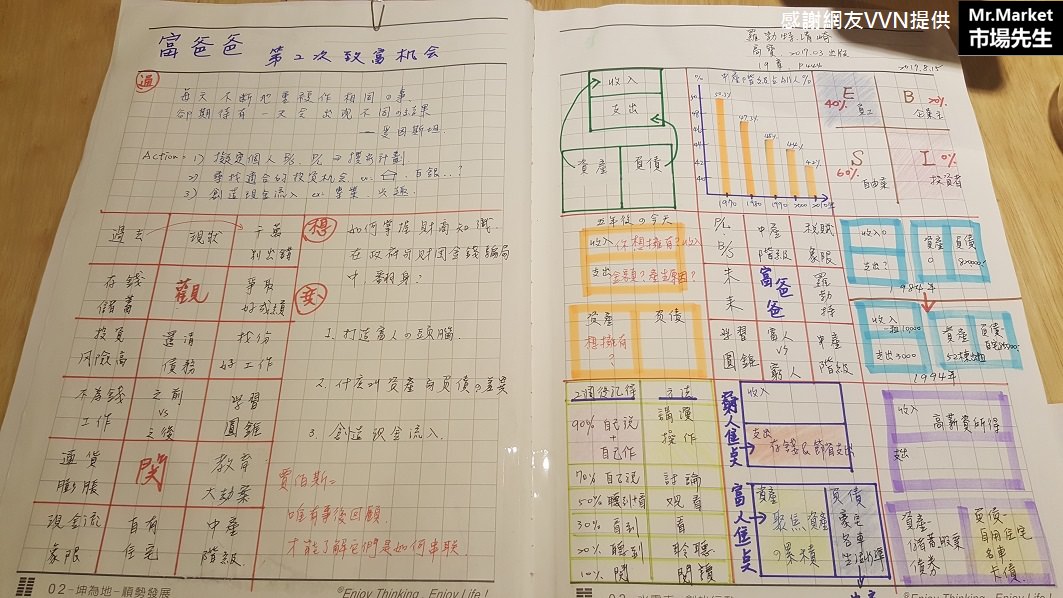 感謝網友VVN提供
Mr.Market
市場先生
富爸爸 第2次致富机会
過
每天不断地重複作相同の事
卻期待有一天会出現不同の結果
愛因斯坦
Action:
3) 創造現金流入 ex: 專業.兴趣.
過去
現狀
千萬
別出錯
存錢
儲蓄
觀
爭取
好成績
投資
風險高
還清
債務
找份
好工作
不為錢
工作
之前
vs
之後
學習
圓錐
通貨
膨脹
關
教育
大劫案
現金流
象限
自有
住宅
中產
階級
想
如何掌握財商知識
在政府与財団金錢騙局
中翻身?
變
1. 打造富人の頭腦.
2. 什庅叫資產与負債の差異
3. 創造現金流入.
賈伯斯=
唯有事後回顧.
才能了解它們是如何串联.
02-坤為地-順勢發展
©Enjoy Thinking , Enjoy Life !
羅勃特清崎
高寶 2017.03 出版
19章. P.444
2017.8.15
收入
支出
資產
負債
%
中產階級占總人%
50.3%
47.2%
45%
44%
42%
1970
1980
1990
2000
2010年
E
40%
員工
B
企業主
S
60%
自由業
I
0%
投資者
五年後の今天
收入 你想擁有?收入
支出 金額?產生原因?
資產
想擁有
?
負債
P/L
B/S
中產
階級
稅賦
象限
未
來
富爸爸
羅勃特
學習
圓錐
富人
vs
窮人
中產
階級
收入 0
支出?
資產
0
負債
1984年
收入
支出 3000
資產
負債
1994年
2週後記得
方法
90% 自己說
+
自己作
講演
操作
70% 自己說
討論
50% 聽到+看
观看
30% 看到
看
20% 聽到
聆聽
10% 閱
閱讀
窮人焦点
收入
支出
存錢&節省支出
富人焦点
資產
聚焦資產
の累積
負債
豪宅
名車
收入
高薪資所得
支出
資產
儲蓄股票
債券
負債
自用住宅
名車
卡債.
©Enjoy Thinking , Enjoy Life !